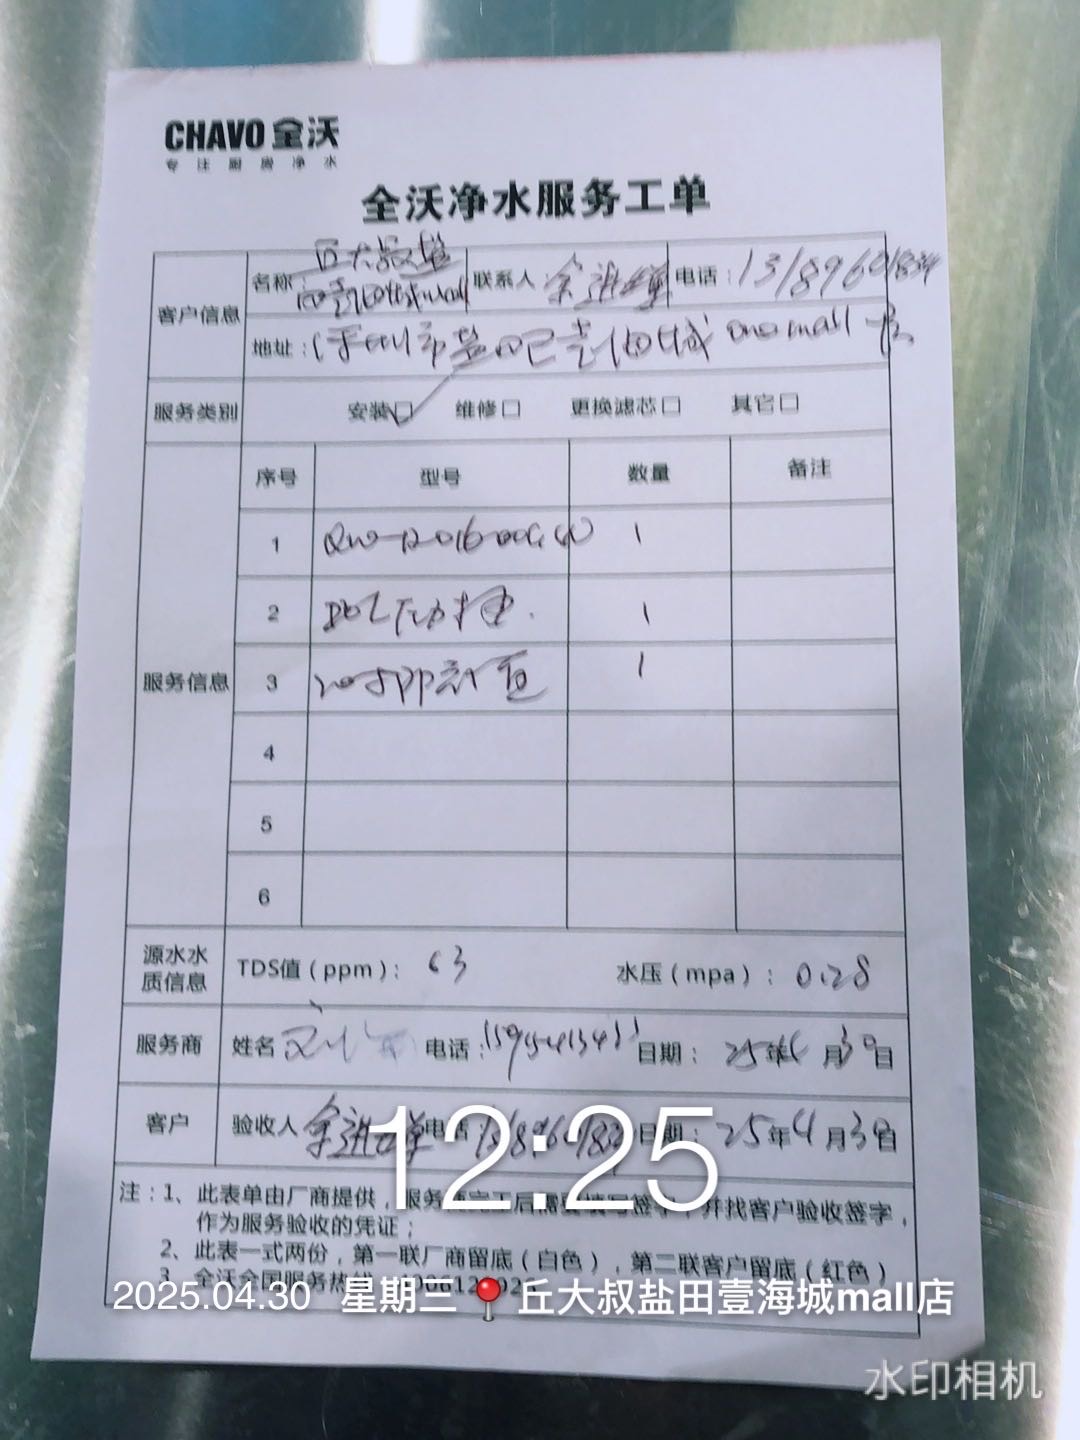 CHAVO 全沃
专注厨房净水
全沃净水服务工单
客户信息 名称 丘大叔盐田壹海城mall 联系人: 余进 电话:
地址: 深圳市盐田区壹海城 one mall 店
服务类别 安装☑ 维修□ 更换滤芯□ 其它□
服务信息 序号 型号 数量 备注
1 1
2 1
3 1
4
5
6
源水水质信息 TDS值(ppm): 63 水压(mpa): 0.28
服务商 姓名 电话: 日期: 25年4月30日
客户 验收人 余进 电话 日期: 25年4月30日
12:25
注:1、此表单由厂商提供,服务商完工后需要填写签字,并找客户验收签字,
作为服务验收的凭证;
2、此表一式两份,第一联厂商留底(白色),第二联客户留底(红色)
3、全沃全国服务热
2025.04.30 星期三 丘大叔盐田壹海城mall店
水印相机